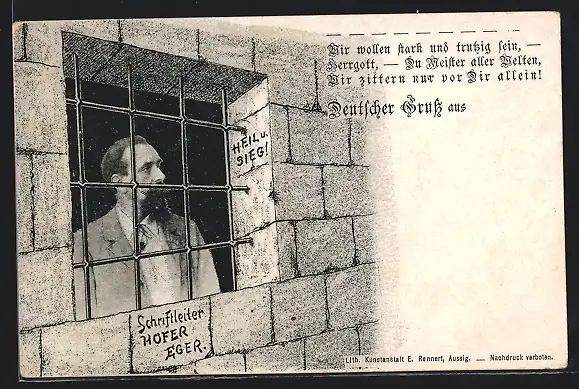 Wir wollen stark und trutzig sein, —
Herrgott, — Du Meister aller Welten,
Wir zittern nur vor Dir allein!
Deutscher Gruß aus
HEIL u.
SIEG!
Schriftleiter
HOFER
EGER.
Lith. Kunstanstalt E. Rennert, Aussig. — Nachdruck verboten.